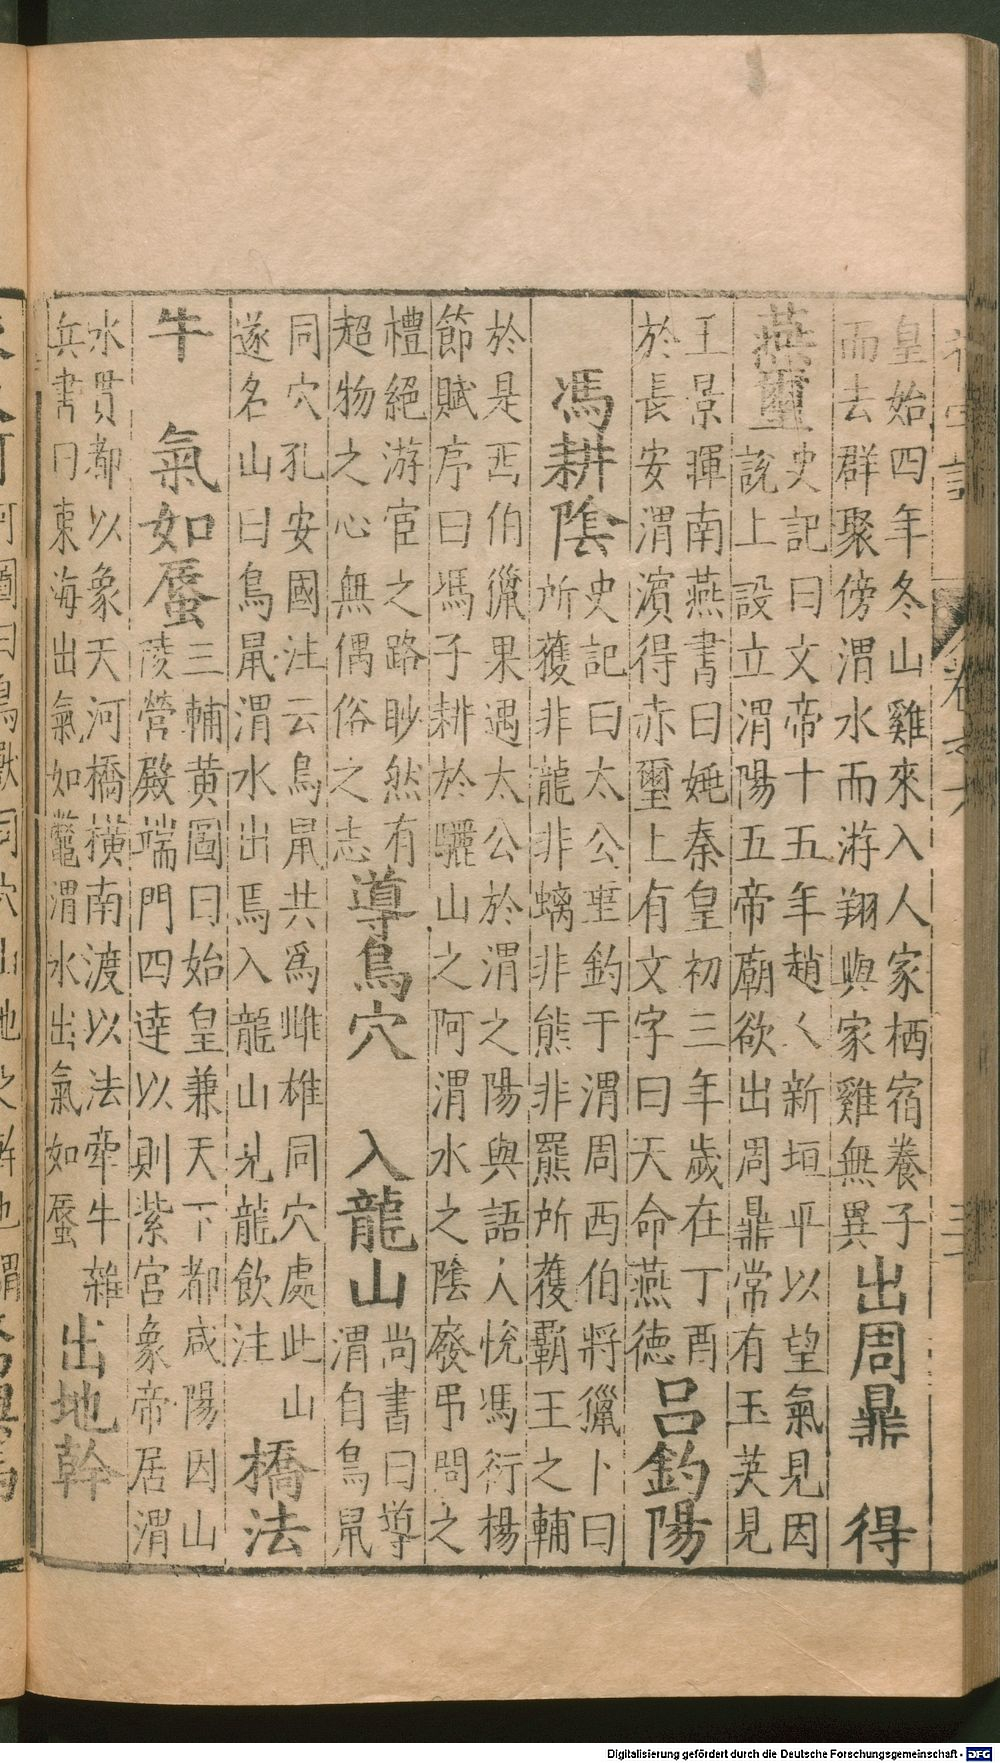 皇始四年冬山雞來入人家栖宿養子
而去群聚傍渭水而游翔與家雞無異
出周鼎　得
燕璽
史記曰文帝十五年趙人新垣平以望氣見因
說上設立渭陽五帝廟欲出周鼎常有玉英見
王景暉南燕書曰姚秦皇初三年歲在丁酉
於長安渭濱得赤璽上有文字曰天命燕德
呂釣陽
馮耕陰
史記曰太公垂釣于渭周西伯將獵卜曰
所獲非龍非螭非熊非羆所獲霸王之輔
於是西伯獵果遇太公於渭之陽與語人悅馮衍楊
節賦序曰馮子耕於驪山之阿渭水之陰廢弔問之
禮絕游宦之路眇然有
超物之心無偶俗之志
導鳥穴　入龍山
尚書曰導
渭自鳥鼠
同穴孔安國注云鳥鼠共爲雌雄同穴處此山
遂名山曰鳥鼠渭水出焉入龍山見龍飲注
橋法
牛　氣如蜃
三輔黃圖曰始皇兼天下都咸陽因山
陵營殿端門四達以則紫宮象帝居渭
水貫都以象天河橋橫南渡以法牽牛雜
兵書曰東海出氣如鼈渭水出氣如蜃
出地幹
Digitalisierung gefördert durch die Deutsche Forschungsgemeinschaft - DFG